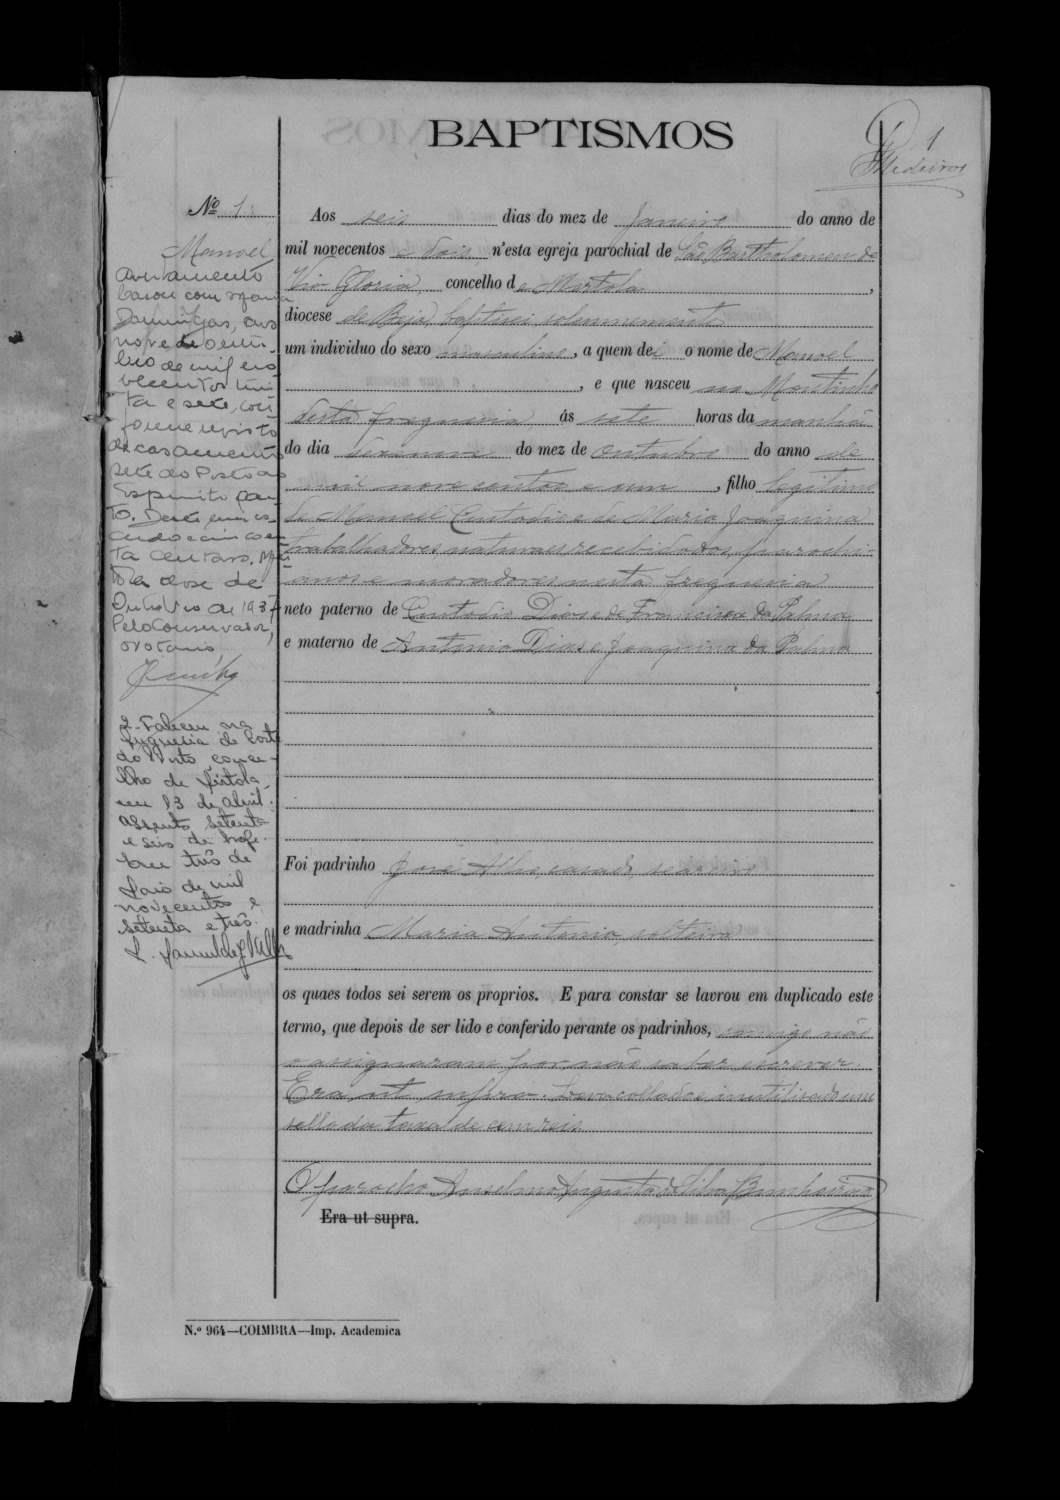 BAPTISMOS
1
Medeiros
Nº 1
Manoel
Aos seis dias do mez de Janeiro do anno de
mil novecentos e dois n'esta egreja parochial de São Bartholomeu de
Via Gloria, concelho de Mertola,
diocese de Beja, baptisei solemnemente
um individuo do sexo masculino, a quem dei o nome de Manoel
, e que nasceu no Montinho
desta freguezia ás sete horas da manhã
do dia do mez de outubro do anno de
mil nove centos e um, filho legitimo
de Manoel Custodio e de Maria Joaquina
trabalhadores naturaes recebidos parochi-
anos e moradores nesta freguezia
neto paterno de Custodio Dias e de Francisca da Palma
e materno de Antonio Dias e Joaquina da Palma
Foi padrinho José casado,
e madrinha Maria Antonia, solteira
os quaes todos sei serem os proprios. E para constar se lavrou em duplicado este
termo, que depois de ser lido e conferido perante os padrinhos, comigo não
o assignaram por não saber escrever.
Era ut supra. Leva collado e inutilisado um
sello da taxa de cem reis.
O parocho Anselmo Augusto da Silva
Era ut supra.
casamento
casou com
Domingas, aos
nove de outu-
bro de mil no-
vecentos trin-
ta e sete, con-
forme registo
de casamento
sete do Posto do
Espirito San-
to.
ta centavos.
tola doze de
Outubro de 1937
Pelo Conservador,
2- Faleceu na
freguesia de Corte
do Pinto conce-
lho de Mértola,
em 13 de abril.
Assento setenta
e seis de hoje.
três de
Maio de mil
novecentos e
setenta e três.
N.º 964—COIMBRA—Imp. Academica